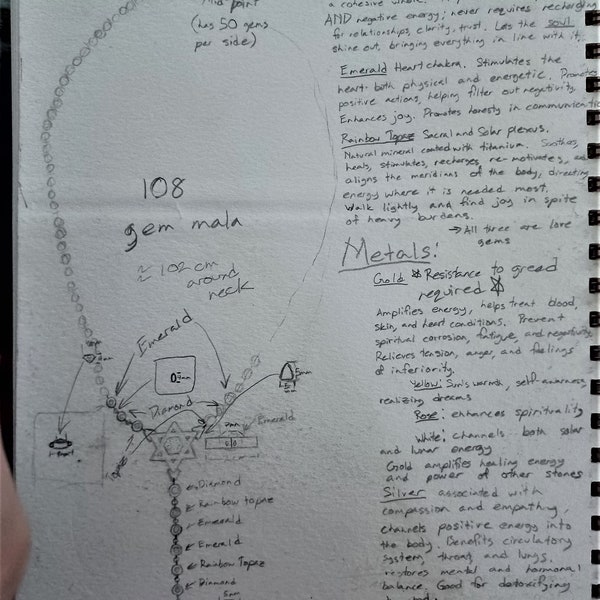 mid point
(has 50 gems
per side)
108
gem mala
≈ 102 cm
around
neck
Emerald
Diamond
Emerald
Diamond
Rainbow topaz
Emerald
Emerald
Rainbow Topaz
Diamond
5mm
a cohesive whole.
AND negative energy; never requires recharging
for relationships, clarity, trust. Lets the soul
shine out, bringing everything in line with it.
Emerald Heart chakra. Stimulates the
heart both physical and energetic. Promotes
positive actions, helping filter out negativity.
Enhances joy. Promotes honesty in communication
Rainbow Topaz Sacral and Solar plexus.
Natural mineral coated with titanium. Soothes,
heals, stimulates, recharges, re-motivates, and
aligns the meridians of the body, directing
energy where it is needed most.
Walk lightly and find joy in spite
of heavy burdens.
→ All three are love
gems
Metals:
Gold * Resistance to greed
required *
Amplifies energy, helps treat blood,
skin, and heart conditions. Prevent
spiritual corrosion, fatigue, and negativity
Relieves tension, anger, and feelings
of inferiority.
Yellow: Sun's warmth, self-awareness,
realizing dreams
Rose: enhances spirituality
White: channels both solar
and lunar energy
Gold amplifies healing energy
and power of other stones
Silver associated with
compassion and empathy,
channels positive energy into
the body. Benefits circulatory
system, throat, and lungs.
restores mental and hormonal
balance. Good for detoxifying
body